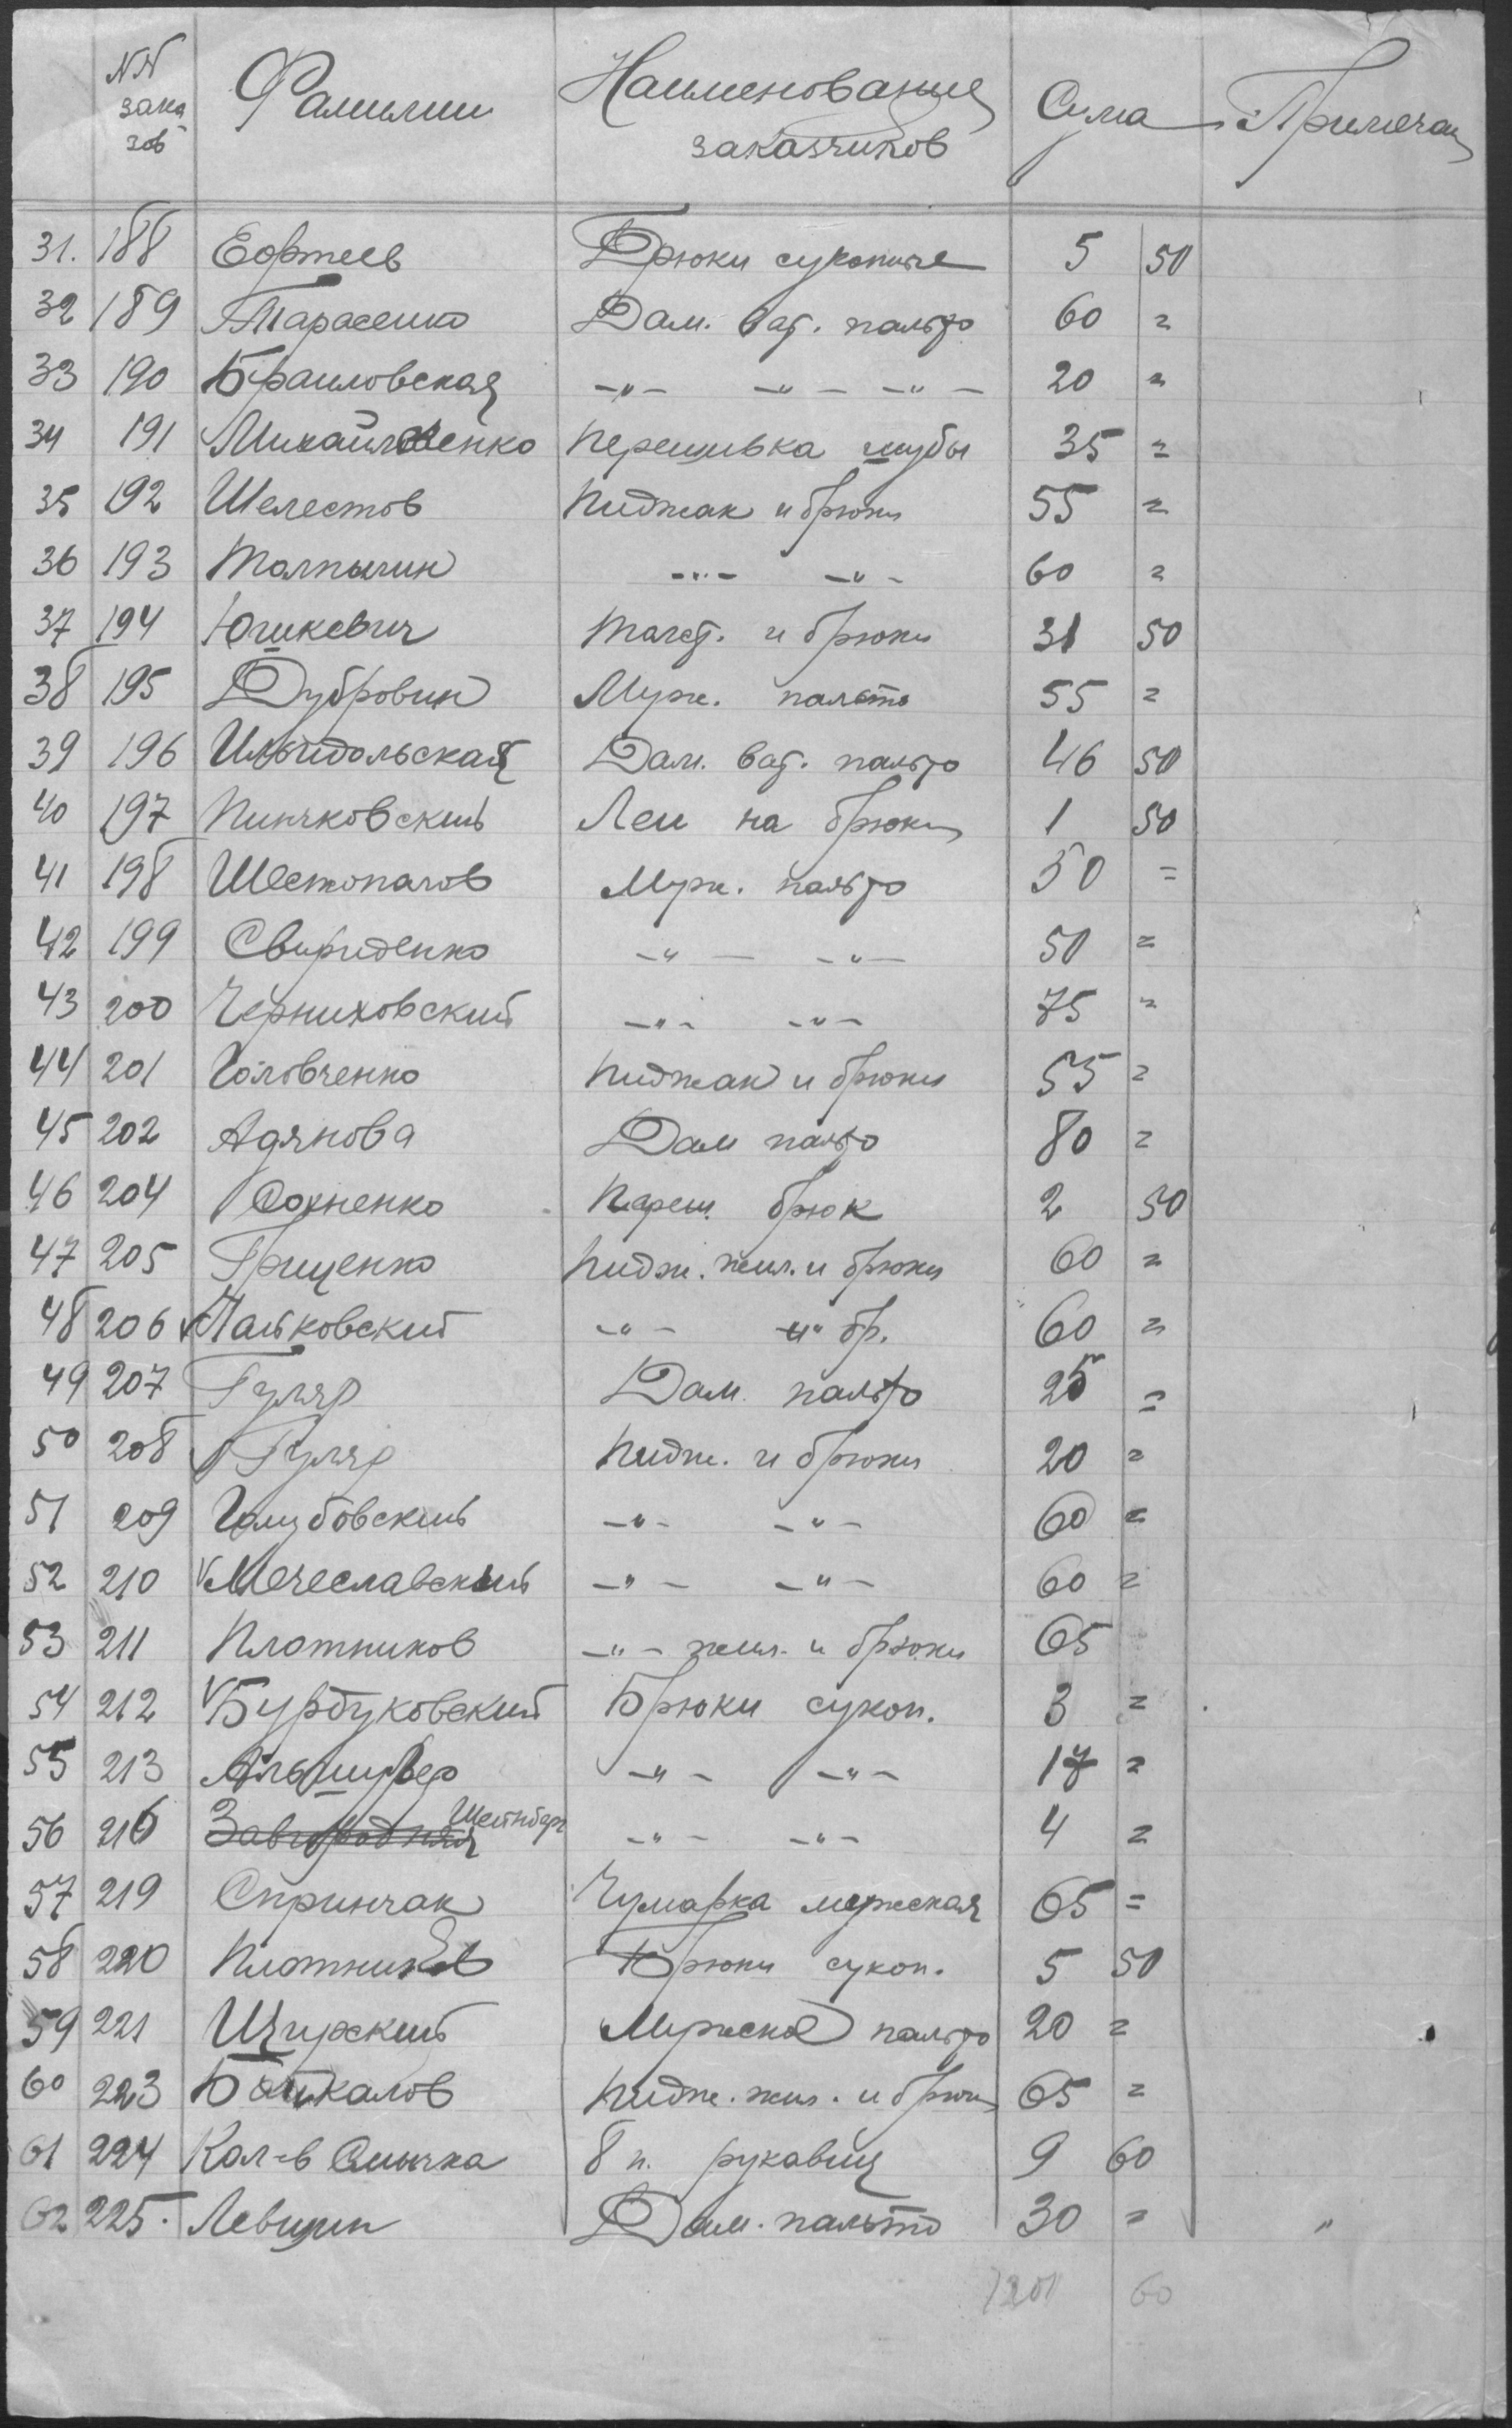 NN зака зов Фамилии Наименование заказчиков Сума Примечан
31. 188 Еофтеев Брюки суконные 5 50
32 189 Тарасенко Дам. ват. пальто 60 =
33 190 Браиловская -"- -"- -"- 20 =
34 191 Михайловенко Перешивка шубы 35 =
35 192 Шелестов Пиджак и брюки 55 =
36 193 Толпыгин -"- -"- 60 =
37 194 Юшкевич Толст. и брюки 31 50
38 195 Дубровин Муж. пальто 55 =
39 196 Дам. ват. пальто 46 50
40 197 Пинчковский Леи на брюки 1 50
41 198 Шестопалов Муж. пальто 50 =
42 199 Свириденко -"- -"- 50 =
43 200 Черниховский -"- -"- 75 "
44 201 Головченко Пиджак и брюки 55 =
45 202 Адянова Дам пальто 80 =
46 204 Сохненко Переш. брюк 2 50
47 205 Гриценко Пидж. жил. и брюки 60 =
48 206 v Чайковский -"- -"- бр. 60 =
49 207 Гуляр Дам. пальто 25 =
50 208 Гуляр Пидж. и брюки 20 =
51 209 Голубовский -"- -"- 60 =
52 210 v Мечеславский -"- -"- 60 =
53 211 Плотников -"- жил. и брюки 65
54 212 v Бурбуковский Брюки сукон. 3 =
55 213 Альшулер -"- -"- 17 =
56 216 Завгородняя Штейнберг -"- -"- 4 =
57 219 Спринчак Чумарка мужская 65 =
58 220 Плотников Брюки сукон. 5 50
59 221 Щ Мужское пальто 20 =
60 223 Байкалов Пидж. жил. и брюки 65 =
61 224 Кол-в Смычка 8 п. рукавиц 9 60
62 225. Левшин Дам. пальто 30 =
1201 60